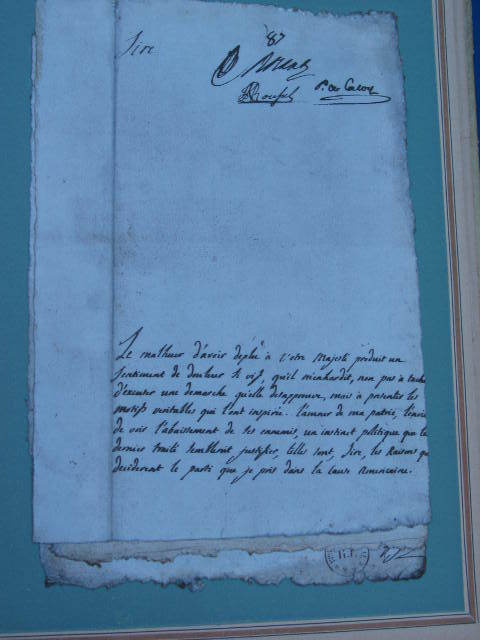 Sire
87
Le malheur d'avoir deplu à Votre Majesté produit un
sentiment de douleur si vif, qu'il m'enhardit, non pas à tacher
d'excuser une demarche qu'elle desapprouve, mais à presenter les
motifs veritables qui l'ont inspirée. l'amour de ma patrie, l'envie
de voir l'abaissement de ses ennemis, un instinct politique que le
dernier traité sembleroit justifier, telles sont, Sire, les Raisons qui
deciderent le parti que je pris dans la cause Americaine.